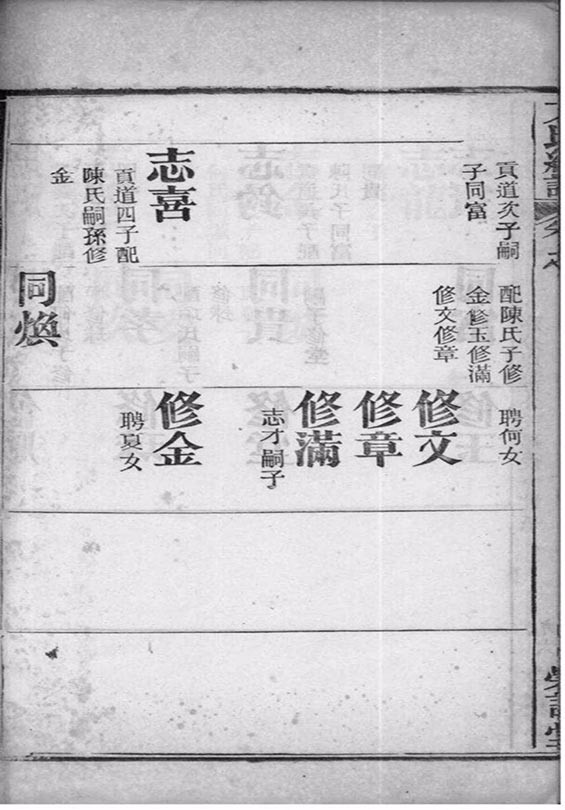 貢道次子嗣
子同富
志喜
貢道四子配
陳氏嗣孫修
金
配陳氏子修
金修玉修滿
修文修章
同煥
聘何女
修文
修章
修滿
志才嗣子
修金
聘夏女